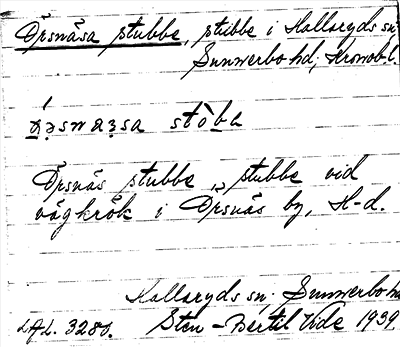 Örsnäsa stubbe, stubbe i Hallaryds sn
Sunnerbo hd; Kronob. l.
stòba
Örsnäs stubbe, stubbe vid
vägkrök i Örsnäs by, H-d.
Hallaryds sn; Sunnerbo hd
LAL. 3280. Sten-Bertil Vide 1939